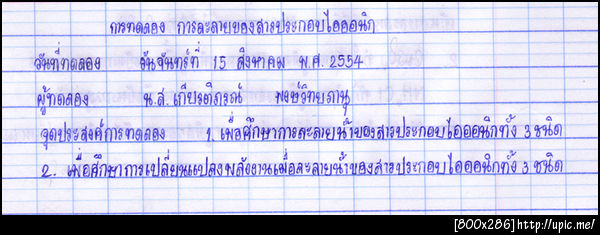 การทดลอง การละลายของสารประกอบไอออนิก
วันที่ทดลอง วันจันทร์ที่ 15 สิงหาคม พ.ศ. 2554
ผู้ทดลอง น.ส. เกียรติภรณ์ พงษ์วิทยภานุ
จุดประสงค์การทดลอง 1. เพื่อศึกษาการละลายน้ำของสารประกอบไอออนิกทั้ง 3 ชนิด
2. เพื่อศึกษาการเปลี่ยนแปลงพลังงานเมื่อละลายน้ำของสารประกอบไอออนิกทั้ง 3 ชนิด
[800x286]http://upic.me/